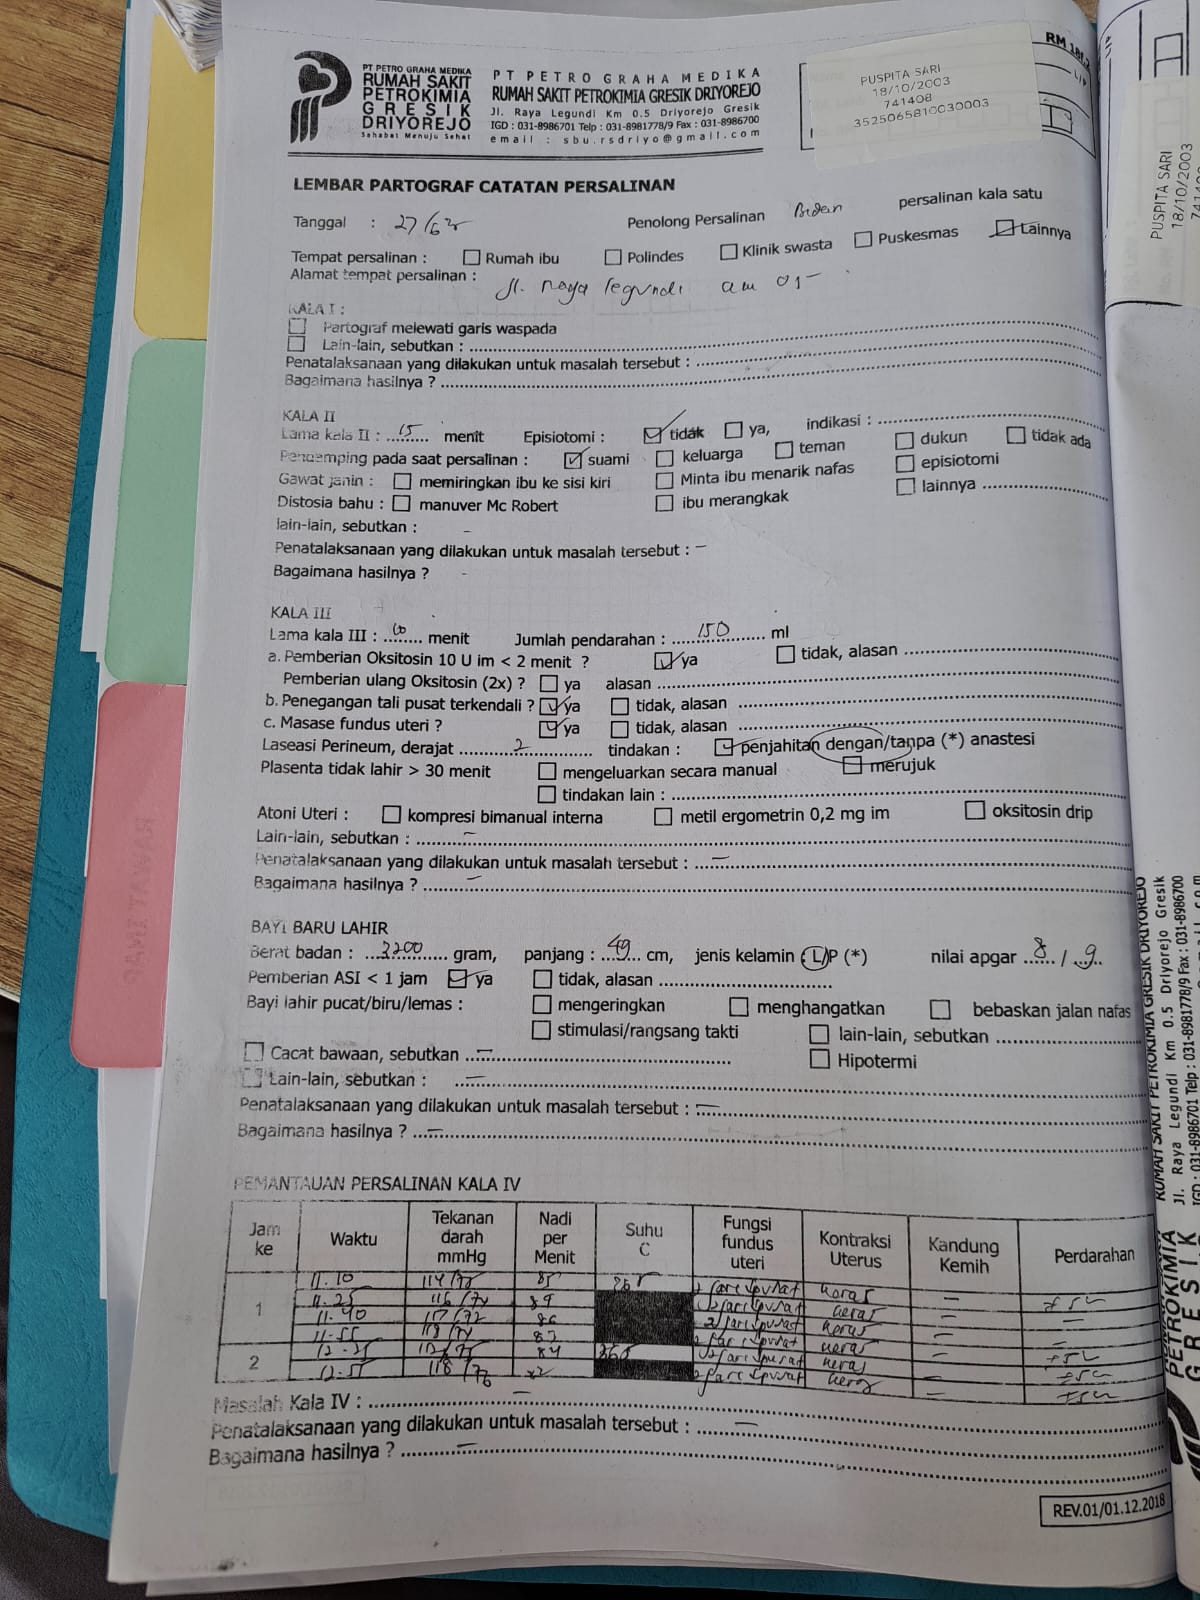 PT PETRO GRAHA MEDIKA
RUMAH SAKIT
PETROKIMIA
GRESIK
DRIYOREJO
Sahabat Menuju Sehat
PT PETRO GRAHA MEDIKA
RUMAH SAKIT PETROKIMIA GRESIK DRIYOREJO
Jl. Raya Legundi Km 0.5 Driyorejo Gresik
IGD : 031-8986701 Telp : 031-8981778/9 Fax : 031-8986700
email : sbu.rsdriyo@gmail.com
PUSPITA SARI
18/10/2003
741408
3525065810030003
LEMBAR PARTOGRAF CATATAN PERSALINAN
Tanggal : 27/6 Penolong Persalinan Bidan persalinan kala satu
Tempat persalinan : Rumah ibu Polindes Klinik swasta Puskesmas Lainnya
Alamat tempat persalinan : Jl. Raya legundi
KALA I :
Partograf melewati garis waspada
Lain-lain, sebutkan :
Penatalaksanaan yang dilakukan untuk masalah tersebut :
Bagaimana hasilnya ?
KALA II
Lama kala II : 15 menit Episiotomi : tidak ya, indikasi :
Pendamping pada saat persalinan : suami keluarga teman dukun tidak ada
Gawat janin : memiringkan ibu ke sisi kiri Minta ibu menarik nafas episiotomi
Distosia bahu : manuver Mc Robert ibu merangkak lainnya
lain-lain, sebutkan : -
Penatalaksanaan yang dilakukan untuk masalah tersebut : -
Bagaimana hasilnya ? -
KALA III
Lama kala III : menit Jumlah pendarahan : 150 ml
a. Pemberian Oksitosin 10 U im < 2 menit ? ya tidak, alasan
Pemberian ulang Oksitosin (2x) ? ya alasan
b. Penegangan tali pusat terkendali ? ya tidak, alasan
c. Masase fundus uteri ? ya tidak, alasan
Laseasi Perineum, derajat 2 tindakan : penjahitan dengan/tanpa (*) anastesi
Plasenta tidak lahir > 30 menit mengeluarkan secara manual merujuk
tindakan lain :
Atoni Uteri : kompresi bimanual interna metil ergometrin 0,2 mg im oksitosin drip
Lain-lain, sebutkan : -
Penatalaksanaan yang dilakukan untuk masalah tersebut : -
Bagaimana hasilnya ? -
BAYI BARU LAHIR
Berat badan : 3200 gram, panjang : 49 cm, jenis kelamin : L/P (*) nilai apgar 8 / 9
Pemberian ASI < 1 jam ya tidak, alasan
Bayi lahir pucat/biru/lemas : mengeringkan menghangatkan bebaskan jalan nafas
stimulasi/rangsang takti lain-lain, sebutkan
Cacat bawaan, sebutkan - Hipotermi
Lain-lain, sebutkan : -
Penatalaksanaan yang dilakukan untuk masalah tersebut : -
Bagaimana hasilnya ? -
PEMANTAUAN PERSALINAN KALA IV
Jam ke Waktu Tekanan darah mmHg Nadi per Menit Suhu C Fungsi fundus uteri Kontraksi Uterus Kandung Kemih Perdarahan
1 11.10 keras -
11.25 keras -
11.40 86 keras -
11.55 keras -
2 12.25 84 keras -
12.55 keras -
Masalah Kala IV : -
Penatalaksanaan yang dilakukan untuk masalah tersebut : -
Bagaimana hasilnya ? -
REV.01/01.12.2018
PUSPITA SARI
18/10/2003
RUMAH SAKIT PETROKIMIA GRESIK DRIYOREJO
Jl. Raya Legundi Km 0.5 Driyorejo Gresik
IGD : 031-8986701 Telp : 031-8981778/9 Fax : 031-8986700
PETROKIMIA
GRESIK